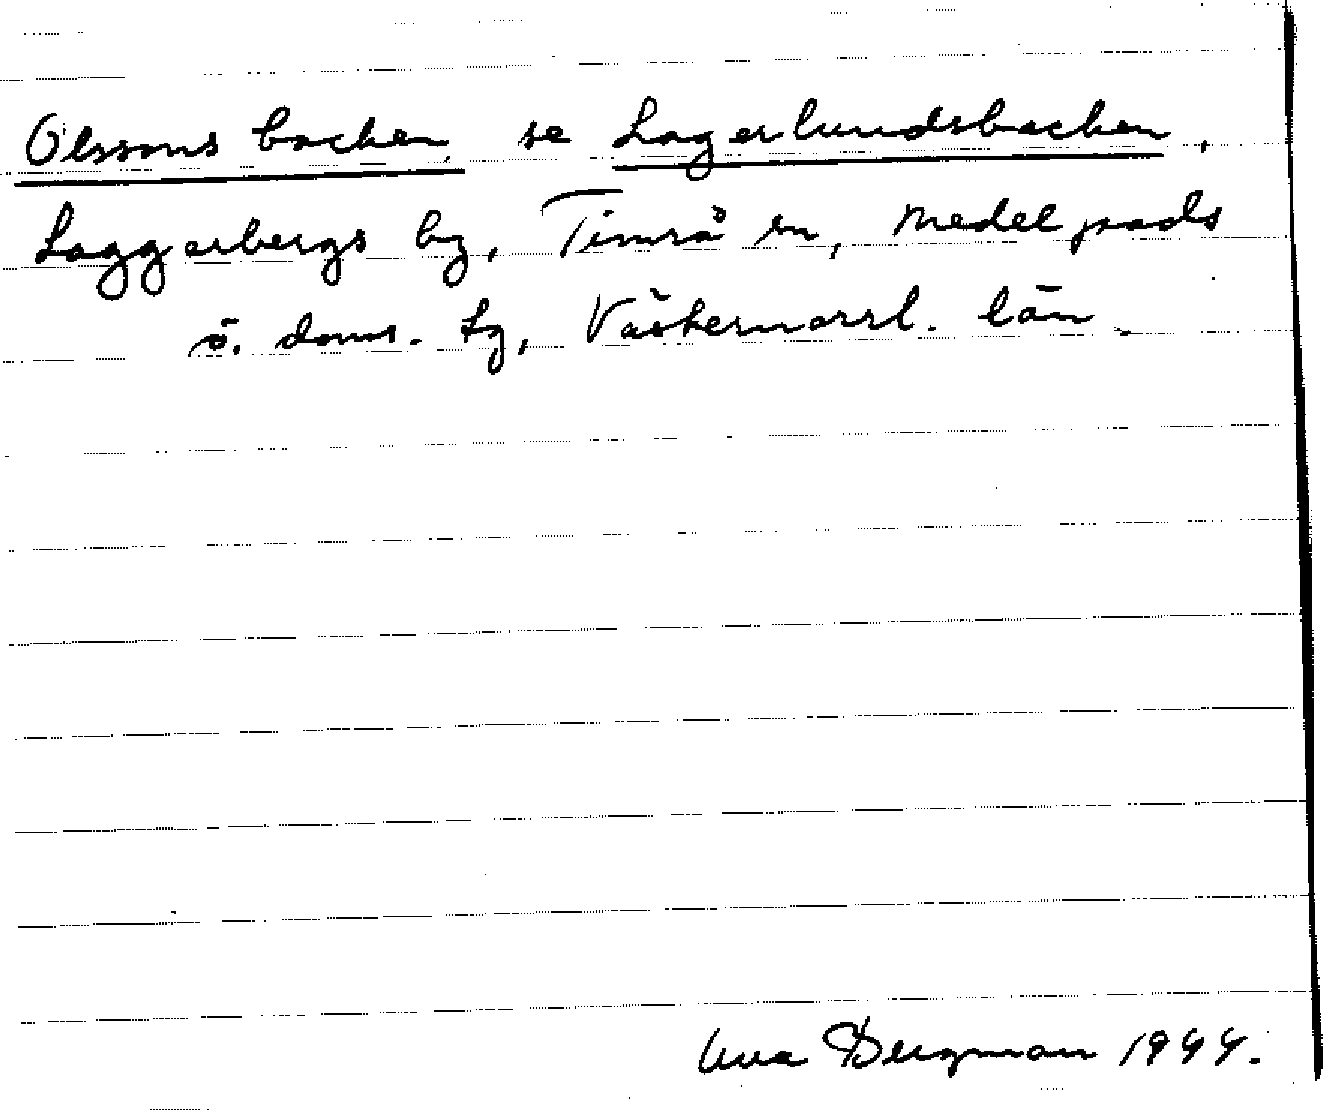 Olssons backen se Lagerlundsbacken,
Laggarbergs by, Timrå sn, Medelpads
ö. doms. tg, Västernorrl. län
Bergman 1944.